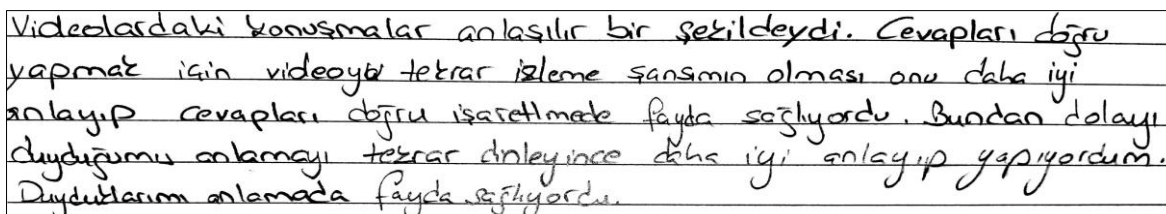 Videolardaki konuşmalar anlaşılır bir şekildeydi. Cevapları doğru
yapmak için videoyu tekrar izleme şansımın olması onu daha iyi
anlayıp cevapları doğru işaretlmede fayda sağlıyordu. Bundan dolayı
duyduğumu anlamayı tekrar dinleyince daha iyi anlayıp yapıyordum.
Duyduklarım anlamada fayda sağlıyordu.